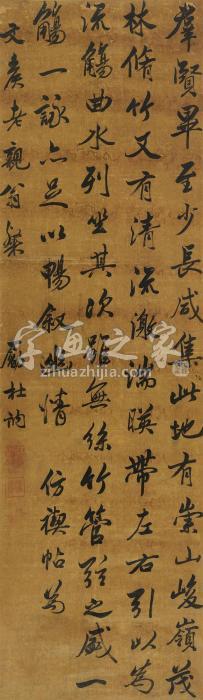 羣賢畢至少長咸集此地有崇山峻嶺茂
林脩竹又有清流激湍暎帶左右引以為
流觴曲水列坐其次雖無絲竹管弦之盛一
觴一詠亦足以暢敘幽情 仿禊帖為
文老親翁粲 顧杜詢
字画之家
zihuazhijia.com